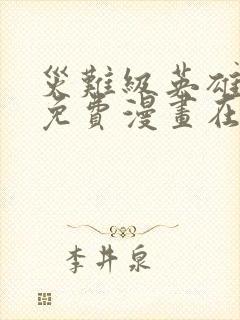 災難級英雄
免費漫畫在
李井泉